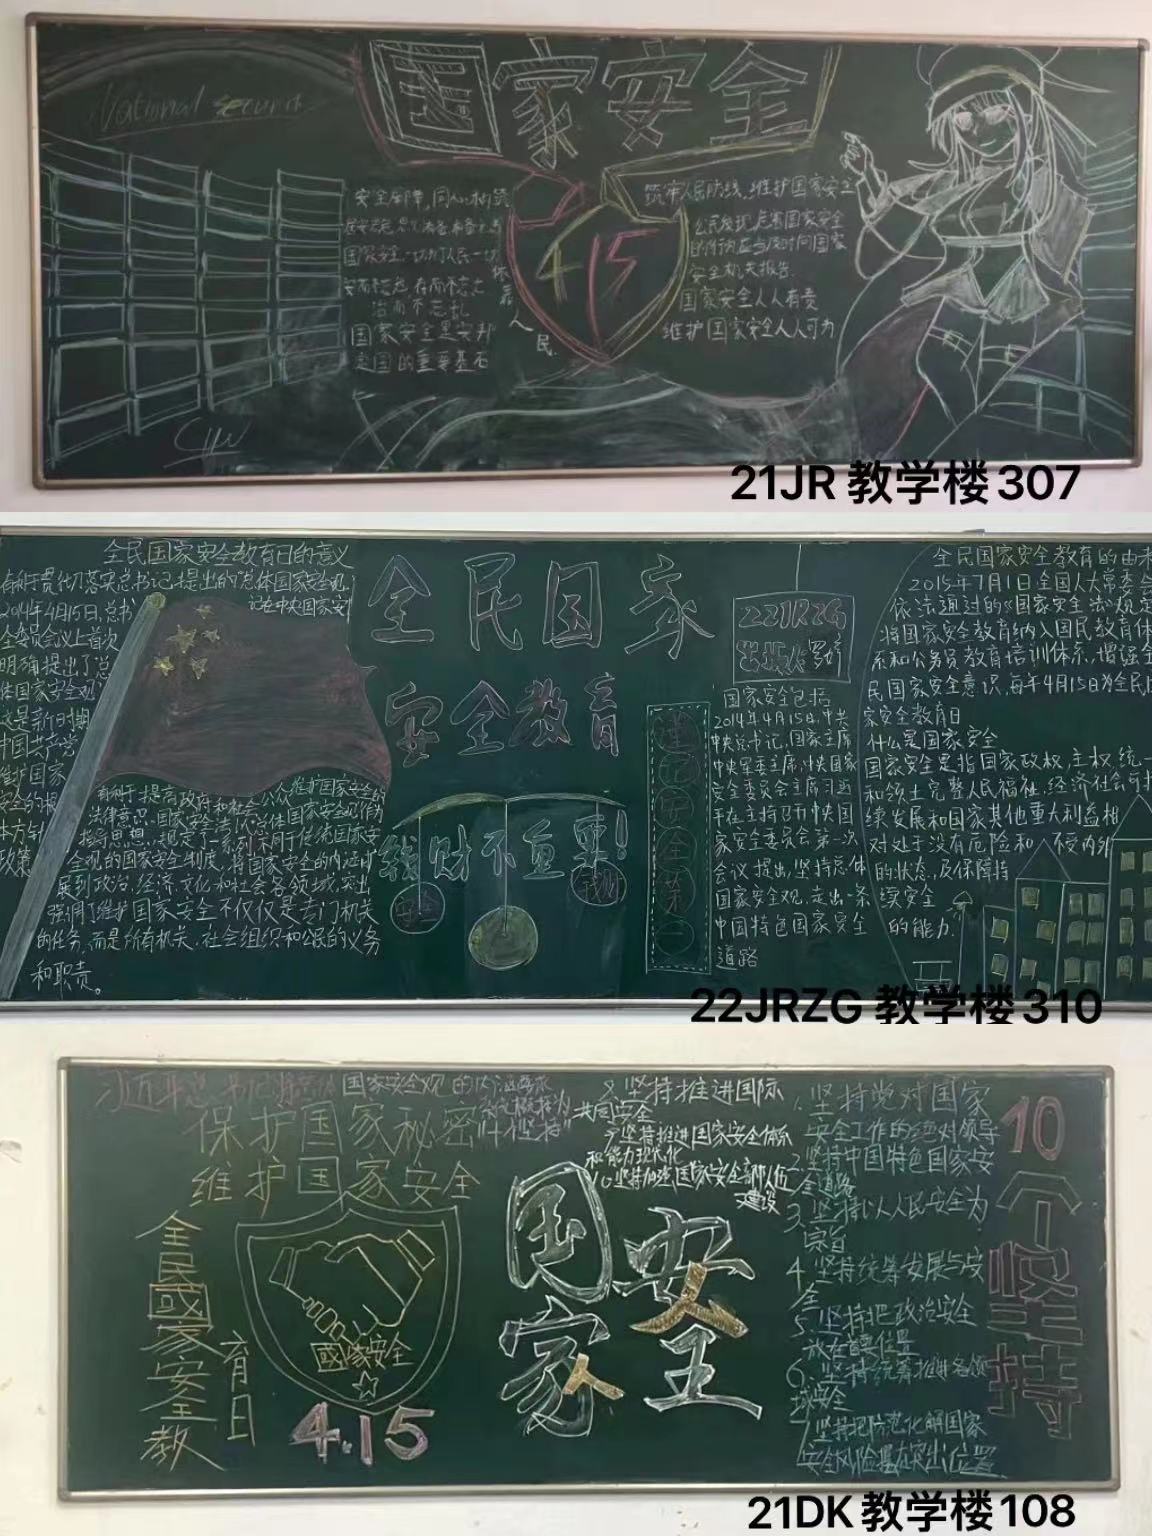 National security
国家安全
415
国家安全是安邦
定国的重要基石
人
民
筑牢人民防线,维护国家安全
公民发现危害国家安全
的行为应当及时向国家
安全机关报告.
国家安全人人有责
维护国家安全人人可为
21JR 教学楼307
全民国家安全教育日的意义
有利于贯彻落实总书记提出的总体国家安全观
2014年4月15日,总书
记在中央国家安
全委员会议上首次
明确提出了总
体国家安全观
这是新时期
中国共产党
维护国家
安全的根
本方针
政策
有利于提高政府和社会公众维护国家安全的
法律意识.国家安全法以总体国家安全观作为
指导思想.规定了一系列采用于传统国家安
全观的国家安全制度,将国家安全的内涵扩
展到政治、经济、文化和社会各领域,突出
强调了维护国家安全不仅仅是专门机关
的任务,而是所有机关、社会组织和公民的义务
和职责。
全民国家
安全教育
钱财不重要!
安全
钱财
22JRZG
谨记安全第一
国家安全包括
2014年4月15日,中共
中央总书记,国家主席
中央军委主席,中央国家
安全委员会主席习近
平在主持召开中央国
家安全委员会第一次
会议提出,坚持总体
国家安全观,走出一条
中国特色国家安全
道路
全民国家安全教育的由来
2015年7月1日全国人大常委会
依法通过的《国家安全法》规定
将国家安全教育纳入国民教育体
系和公务员教育培训体系,增强全
民国家安全意识,每年4月15日为全民国
家安全教育日
什么是国家安全
国家安全是指国家政权、主权、统一
和领土完整、人民福祉、经济社会可持
续发展和国家其他重大利益相
对处于没有危险和不受内外
的状态,及保障持
续安全
的能力.
22JRZG 教学楼310
习近平总书记将总体国家安全观的内涵要求
系统概括为
"十个坚持"
保护国家秘密
维护国家安全
全民國家安全教
育日
國家安全
4.15
国家安全
8.坚持推进国际
共同安全
9.坚持推进国家安全体系
和能力现代化
10.坚持加强国家安全部队伍
建设
1.坚持党对国家
安全工作的绝对领导
2.坚持中国特色国家安
全道路
3.坚持以人民安全为
宗旨
4.坚持统筹发展与安
全
5.坚持把政治安全
放在首要位置
6.坚持统筹推进各领
域安全
7.坚持把防范化解国家
安全风险摆在突出位置
10个坚持
21DK 教学楼108